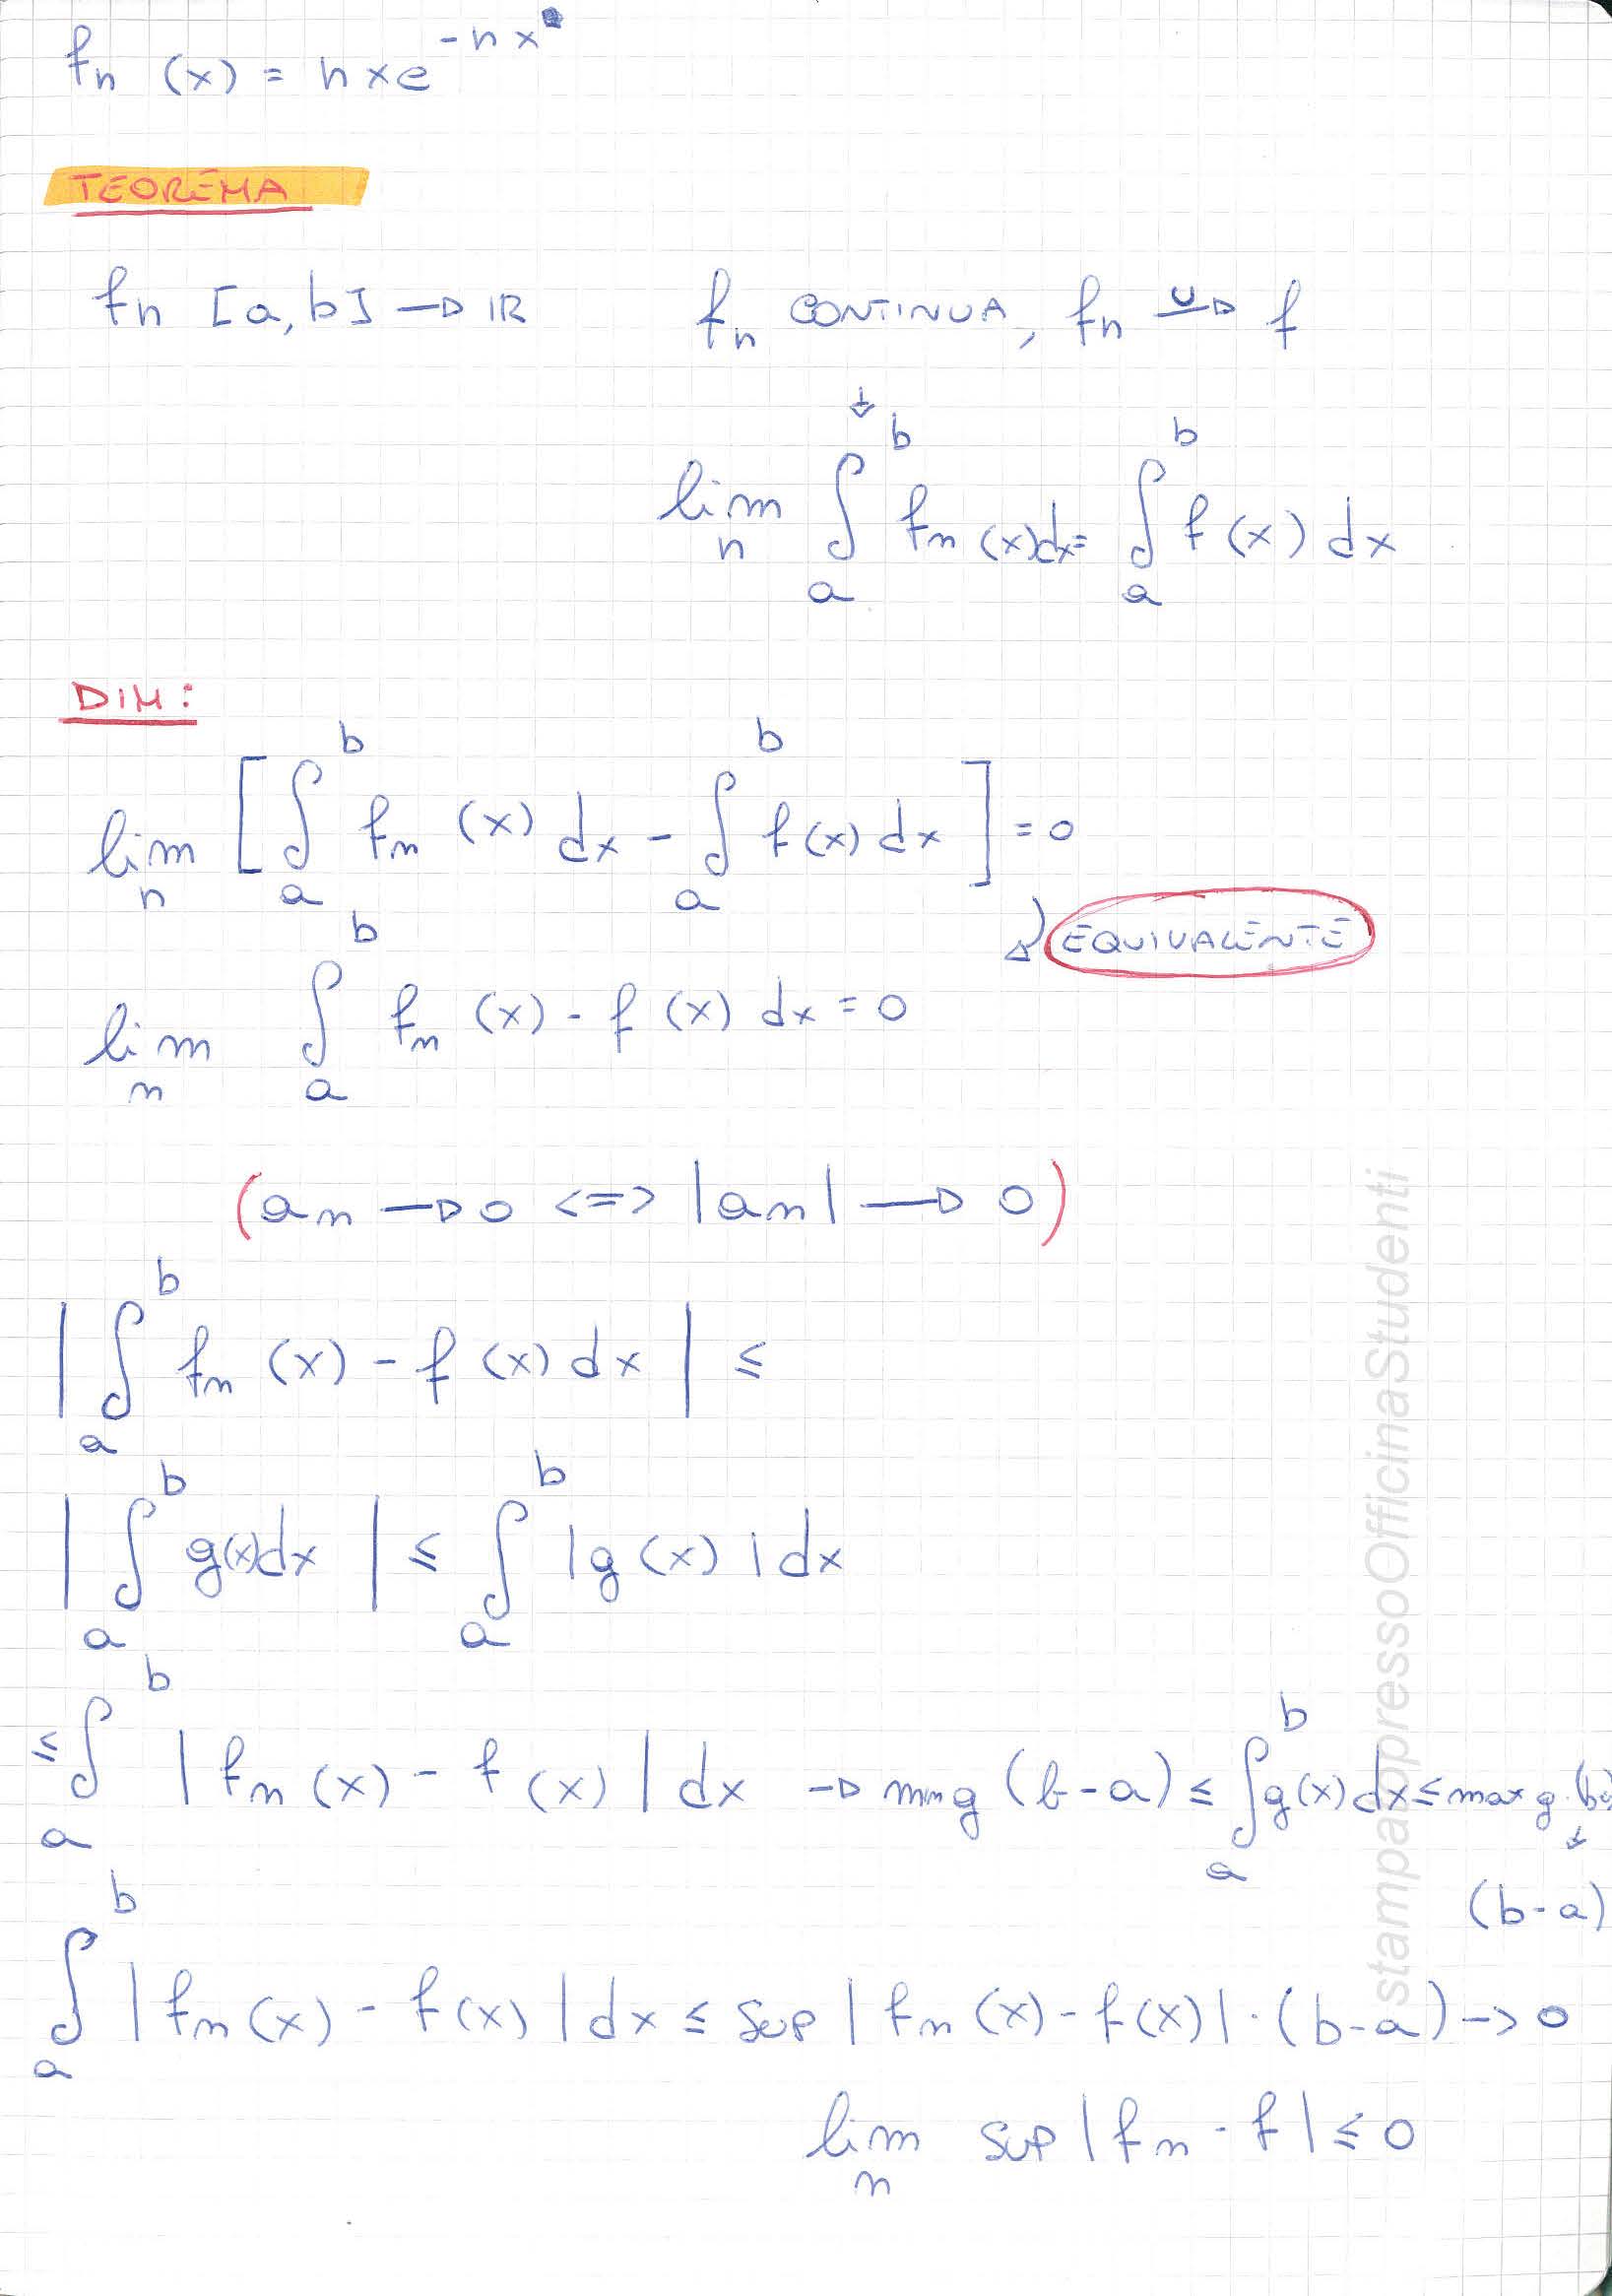 fn (x) = nxe^-nx
TEOREMA
fn [a,b] → IR fn CONTINUA, fn U→ f
↓
lim n ∫ a b fn (x)dx = ∫ a b f(x) dx
DIM:
lim n [∫ a b fn (x) dx - ∫ a b f(x) dx] = 0
EQUIVALENTE
lim n ∫ a b fn (x) - f (x) dx = 0
(an → 0 <=> |an| → 0)
|∫ a b fn (x) - f (x) dx| ≤
|∫ a b g(x)dx| ≤ ∫ a b |g(x)| dx
≤ ∫ a b |fn (x) - f (x)| dx → min g (b-a) ≤ ∫ a b g(x) dx ≤ max g ·
↓
(b-a)
∫ a b |fn (x) - f(x)| dx ≤ SUP |fn (x) - f(x)| · (b-a) → 0
lim n SUP |fn - f| ≤ 0
stampatoppressoOfficinaStudenti